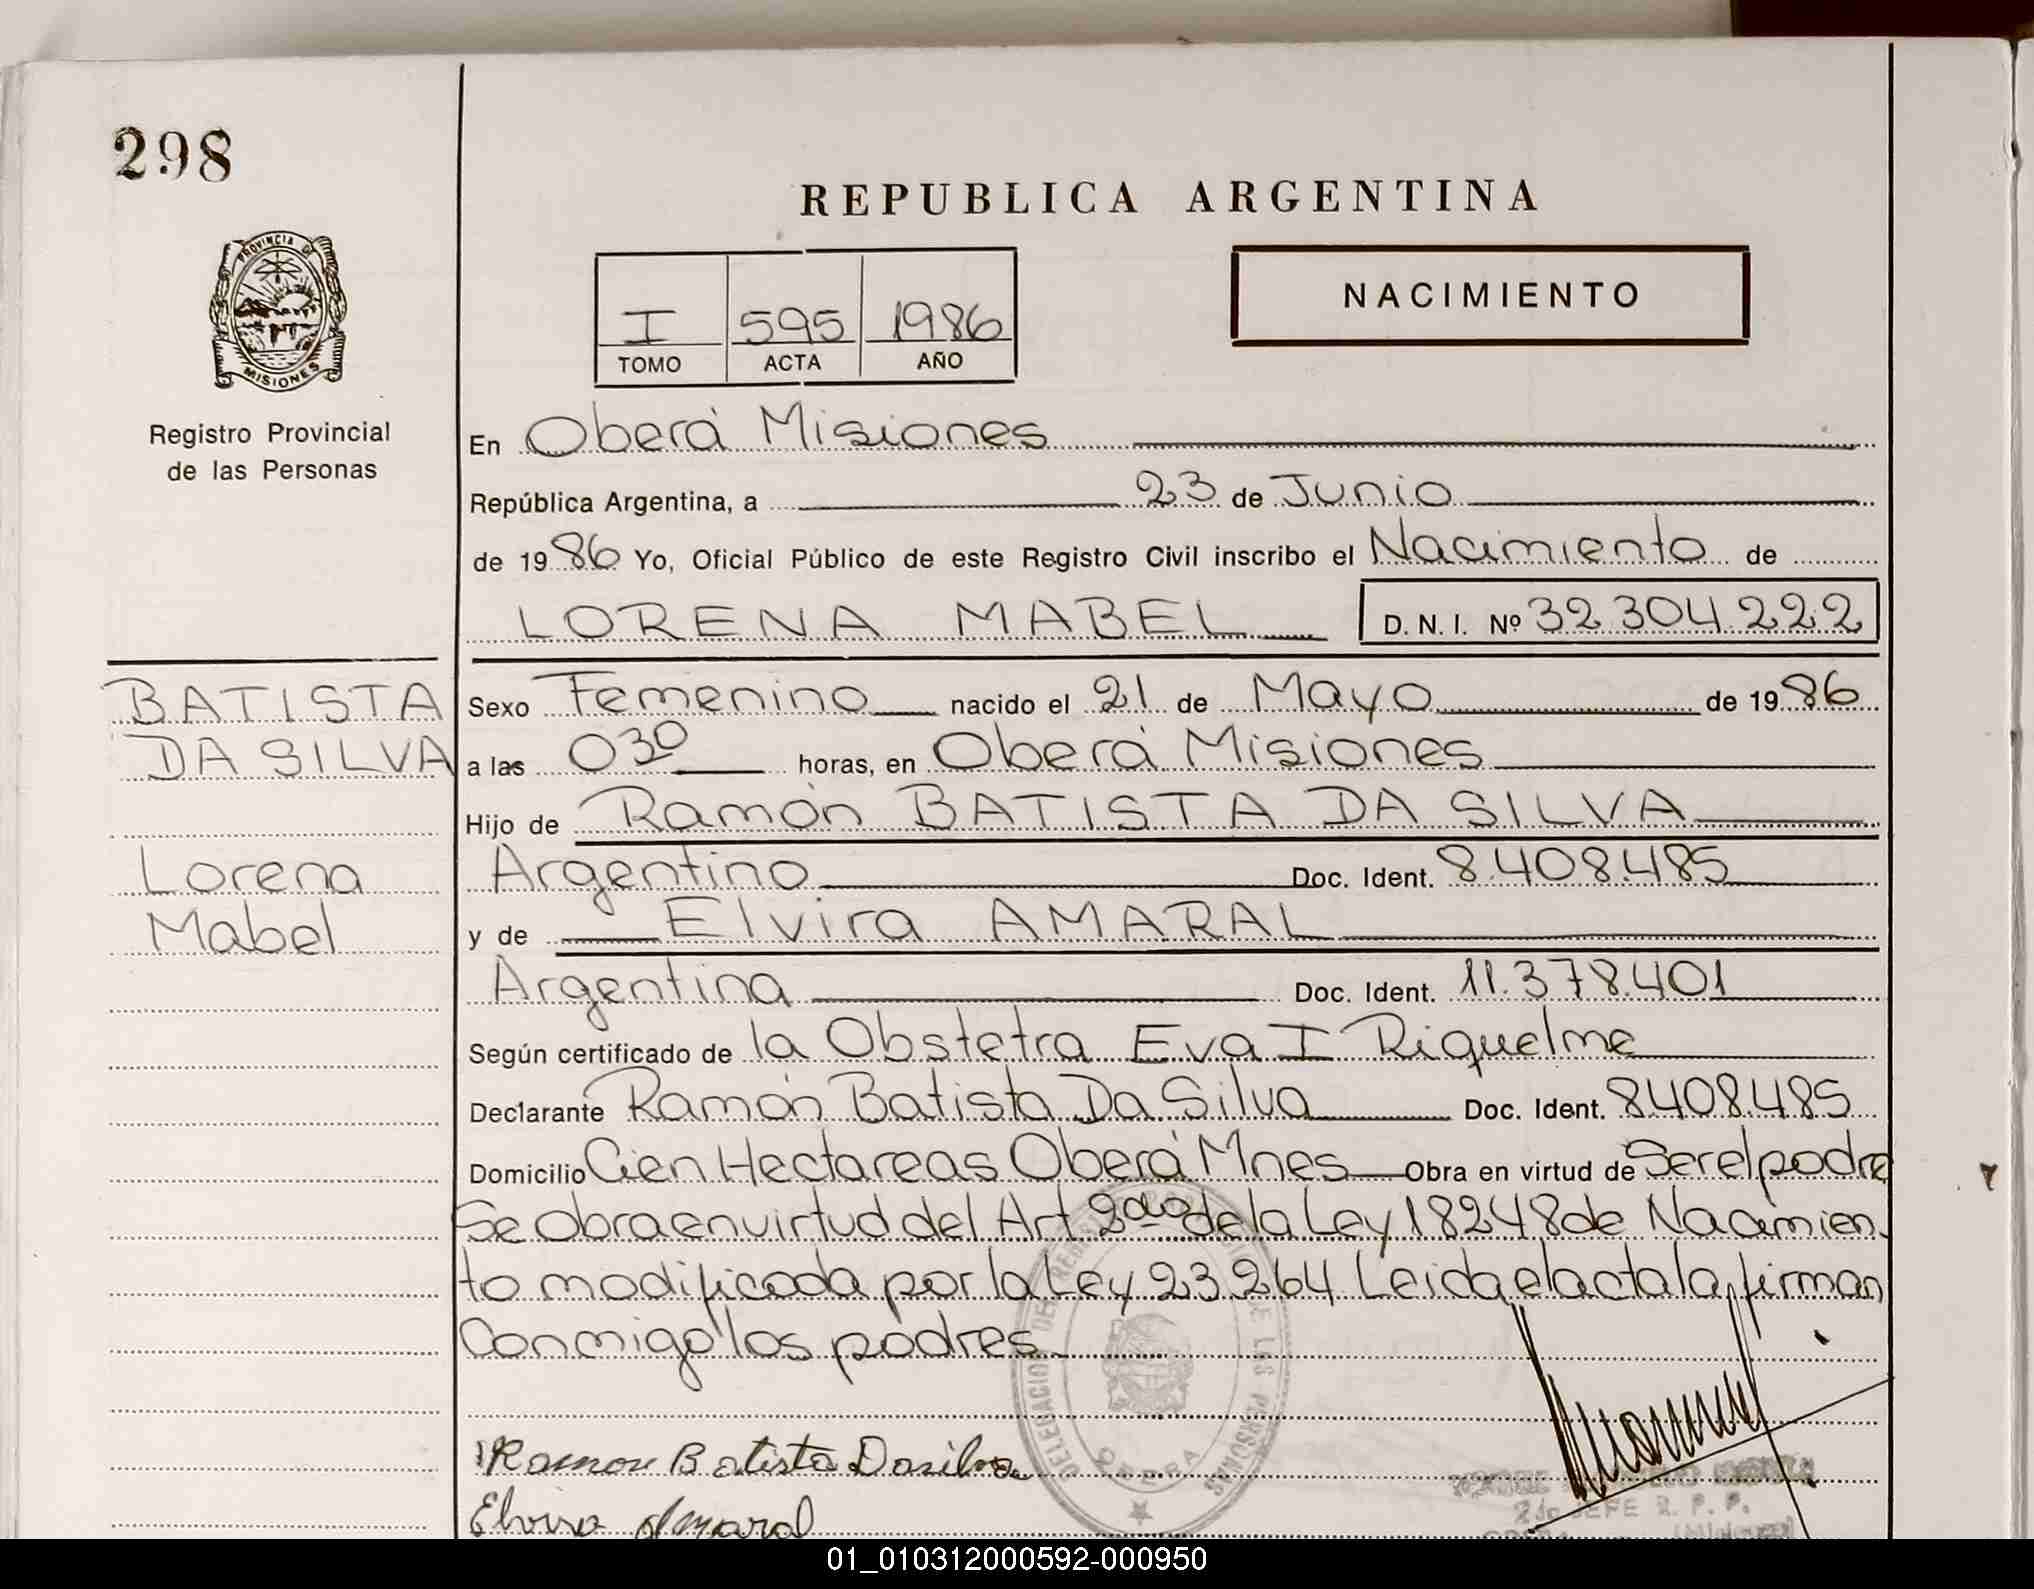 298
REPUBLICA ARGENTINA
PROVINCIA D
MISIONES
Registro Provincial
de las Personas
I 595 1986
TOMO ACTA AÑO
NACIMIENTO
En Oberá Misiones
República Argentina, a 23 de Junio
de 1986 Yo, Oficial Público de este Registro Civil inscribo el Nacimiento de
LORENA MABEL D.N.I. Nº 32.304.222
BATISTA
DA SILVA
Lorena
Mabel
Sexo Femenino nacido el 21 de Mayo de 1986
a las 030 horas, en Oberá Misiones
Hijo de Ramón BATISTA DA SILVA
Argentino Doc. Ident. 8.408.485
y de Elvira AMARAL
Argentina Doc. Ident. 11.378.401
Según certificado de la Obstetra Eva I Riquelme
Declarante Ramón Batista Da Silva Doc. Ident. 8.408.485
Domicilio Cien Hectareas Oberá Mnes Obra en virtud de Ser el padre
Se obra en virtud del Art 2do de la Ley 18248 de Nacimien
to modificada por la Ley 23.264 Leida el acta la firman
Conmigo los padres
DELEGACION DEL REGISTRO DE LAS PERSONAS
OBERA
Ramon Batista Dasilva
Elvira Amaral
2do JEFE R. P. P.
01_010312000592-000950